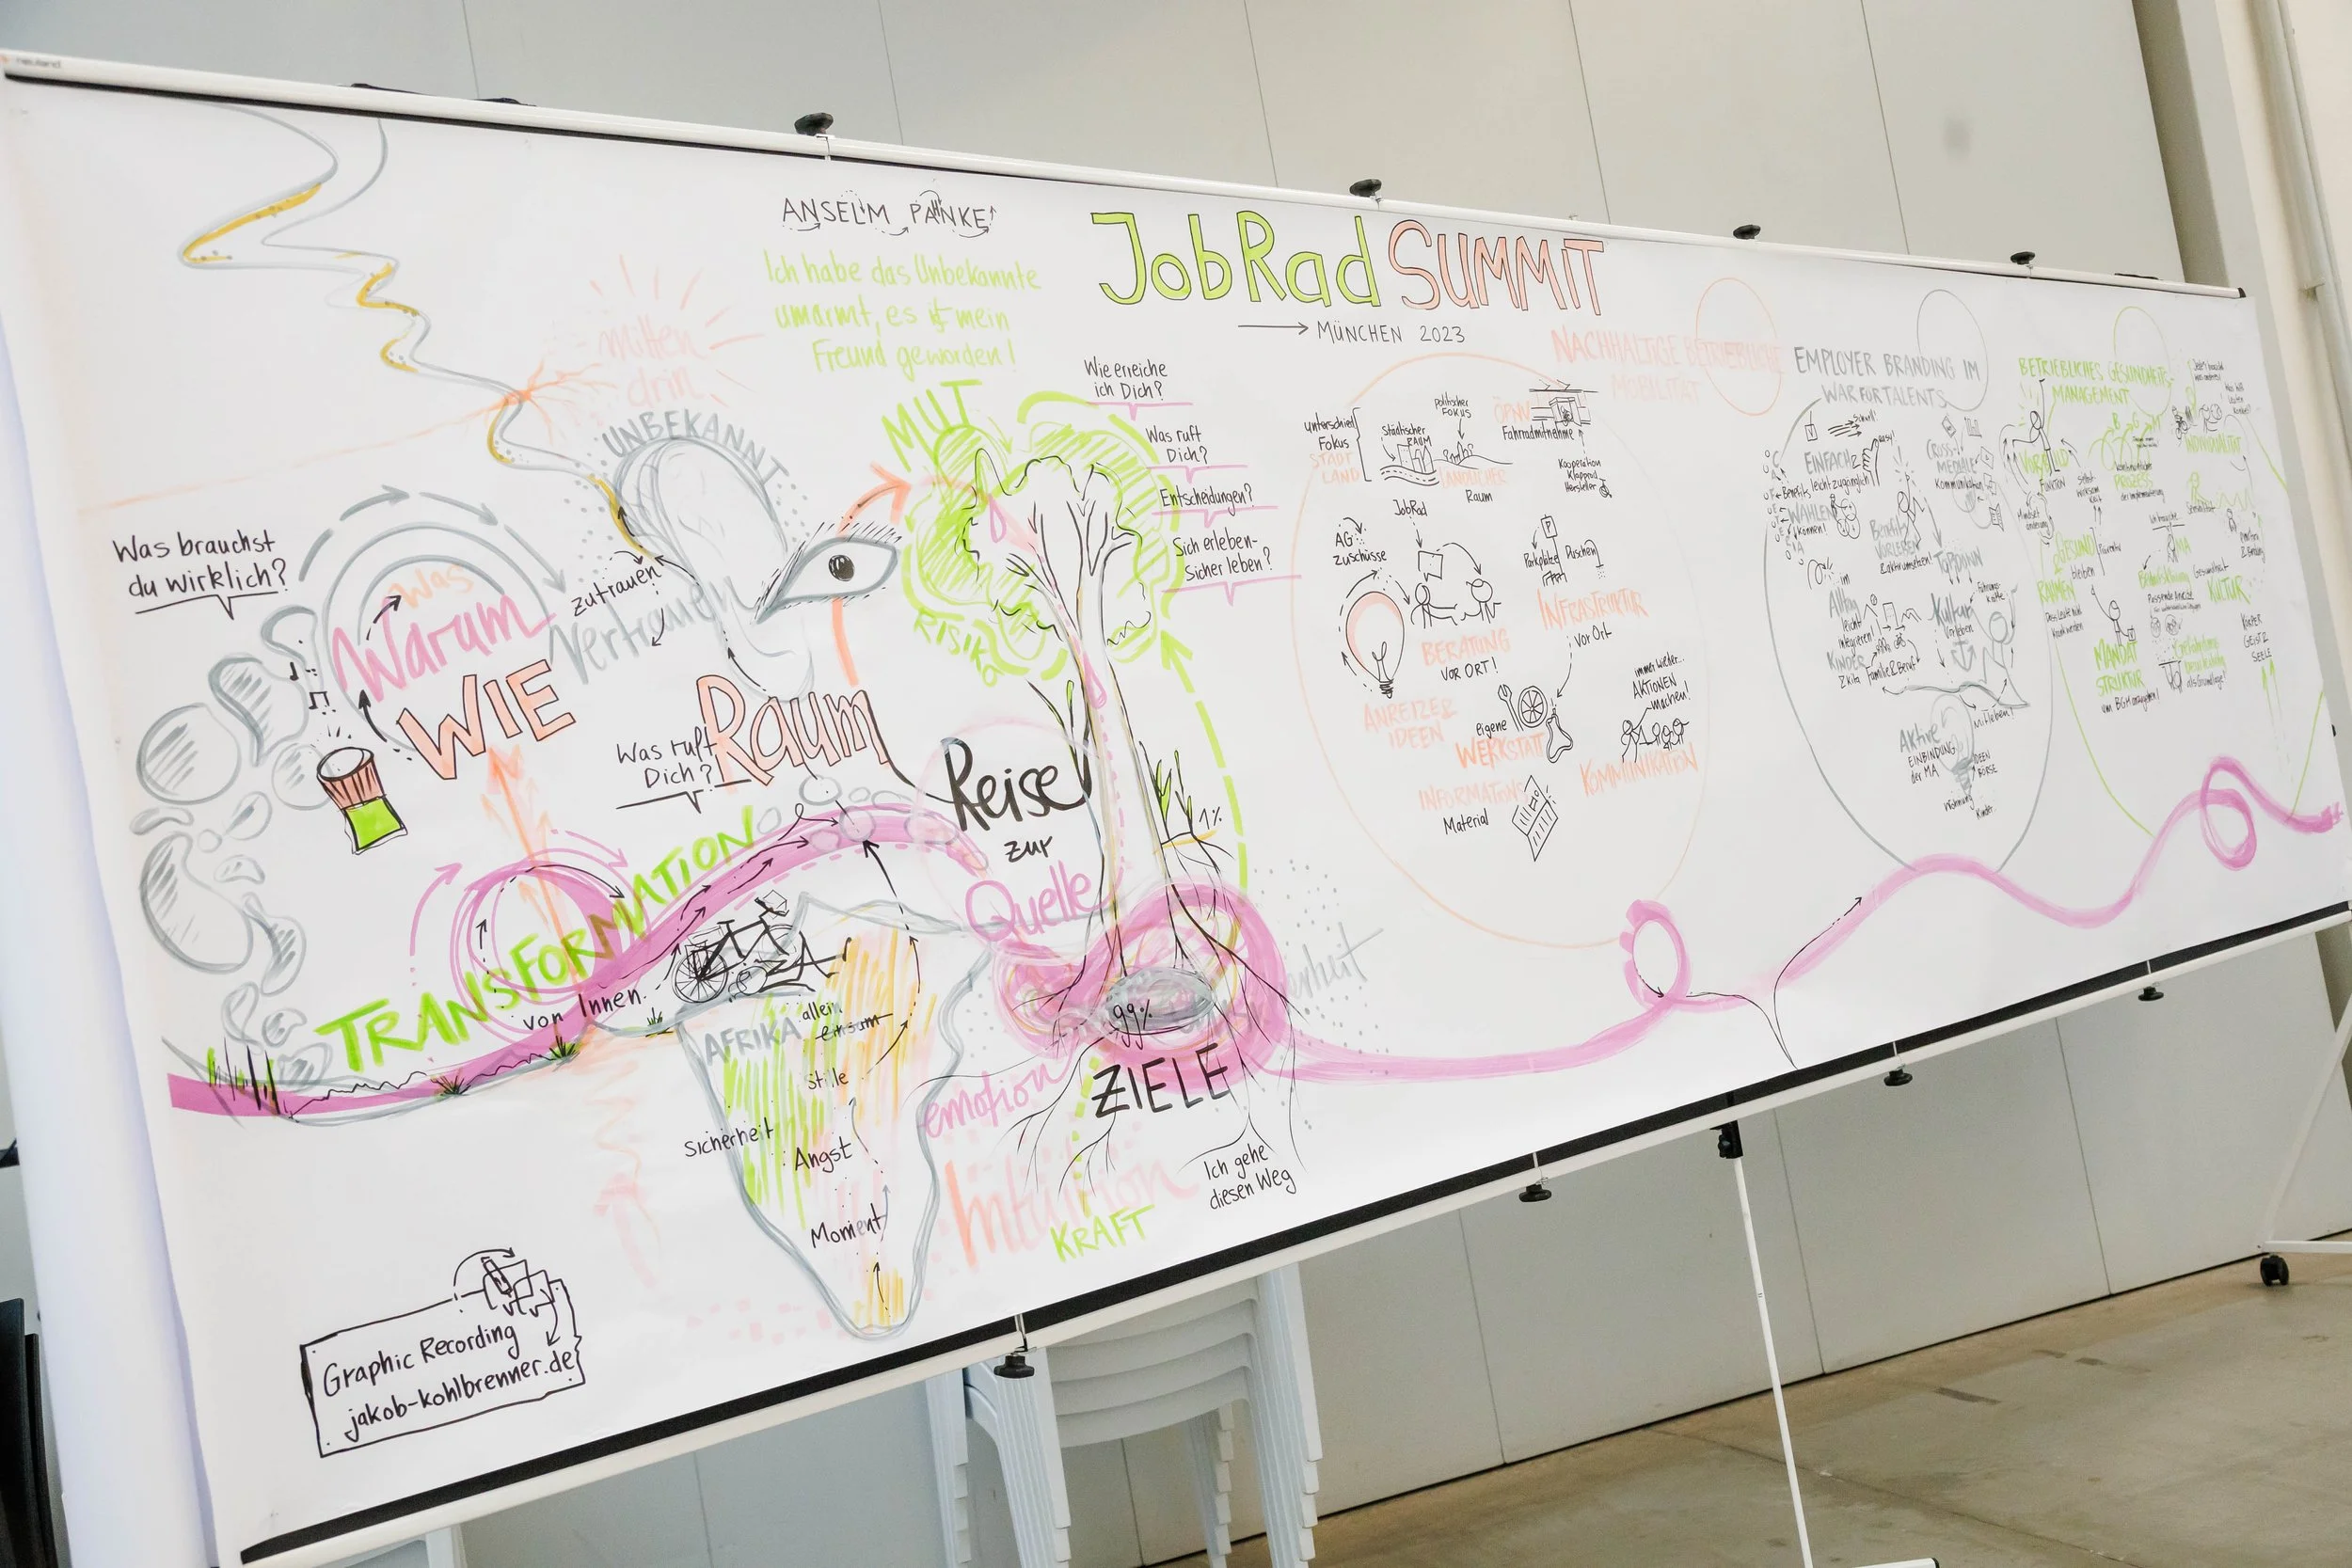 neuland
ANSELM PANKE
Ich habe das Unbekannte
umarmt, es ist mein
Freund geworden!
JobRad SUMMIT
MÜNCHEN 2023
mitten
drin
UNBEKANNT
MUT
RISIKO
Wie erreiche
ich Dich?
Was ruft
Dich?
Entscheidungen?
Sich erleben-
Sicher leben?
Was brauchst
du wirklich?
Was
Warum
WIE
zutrauen
Vertrauen
Was ruft
Dich?
Raum
Reise
zur
Quelle
TRANSFORMATION
von Innen
AFRIKA
allein
einsam
Stille
Sicherheit
Angst
Moment
1%
99%
ZIELE
emotion
Intuition
KRAFT
Ich gehe
diesen Weg
Graphic Recording
jakob-kohlbrenner.de
NACHHALTIGE BETRIEBLICHE
MOBILITÄT
unterschied
Fokus
STADT
LAND
Städtischer
RAUM
politischer
FOKUS
LÄNDLICHER
Raum
ÖPNV
Fahrradmitnahme
Kooperation
Klapprad
Hersteller
JobRad
AG
Zuschüsse
BERATUNG
VOR ORT!
ANREIZE
IDEEN
Parkplätze
Duschen
INFRASTRUKTUR
vor Ort
eigene
WERKSTATT
immer wieder...
AKTIONEN
machen!
KOMMUNIKATION
INFORMATIONS
Material
EMPLOYER BRANDING IM
WAR FOR TALENTS
schnell!
easy!
EINFACH &
leicht zugänglich
Benefits
WÄHLEN
können!
CROSS-
MEDIALE
Kommunikation
Benefits
VORLEBEN
TOPDOWN
im
Alltag
leicht
integrieren!
KINDER
& kita
Familie & Beruf
Kultur
vorleben
Mitleben!
Aktive
EINBINDUNG
der MA
IDEEN
BÖRSE
Kinder
BETRIEBLICHES GESUNDHEITS-
MANAGEMENT
VORBILD
B G M
PROZESS
INDIVIDUALITÄT
GESUND
bleiben
RAHMEN
MA
Gesundheit
KULTUR
MANDAT
STRUKTUR
als Grundlage!
KÖRPER
GEIST &
SEELE